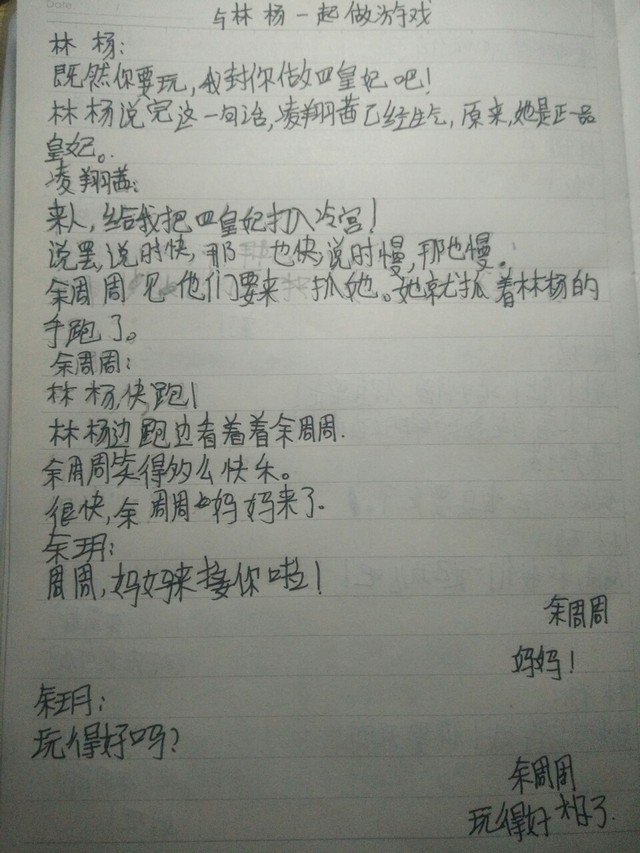 Date. /
与林杨一起做游戏
林杨:
既然你要玩,我封你做四皇妃吧!
林杨说完这一句话,凌翔茜已经生气,原来,她是正一品
皇妃。
凌翔茜:
来人,给我把四皇妃打入冷宫!
说罢,说时快,那 也快,说时慢,那也慢。
余周周见他们要来抓她。她就抓着林杨的
手跑了。
余周周:
林杨,快跑!
林杨边跑边看着着余周周.
余周周笑得多么快乐。
很快,余周周 妈妈来了.
余玥:
周周,妈妈来接你啦!
余周周
妈妈!
余玥:
玩得好吗?
余周周
玩得好 了.